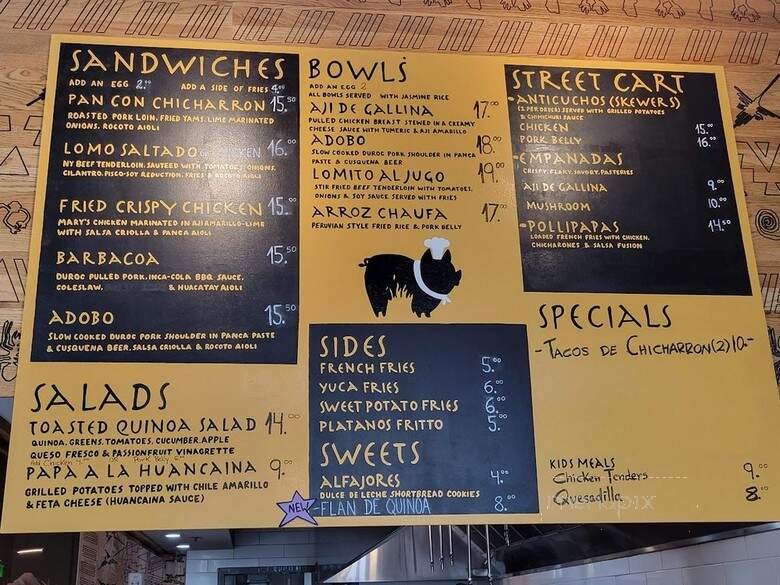 SANDWICHES
ADD AN EGG 2.00 ADD A SIDE OF FRIES 4.00
PAN CON CHICHARRON 15.50
ROASTED PORK LOIN, FRIED YAMS, LIME MARINATED
ONIONS, ROCOTO AIOLI
LOMO SALTADO CHICKEN 16.00
NY BEEF TENDERLOIN, SAUTEED WITH TOMATOES, ONIONS,
CILANTRO, PISCO-SOY REDUCTION, FRIES & ROCOTO AIOLI
FRIED CRISPY CHICKEN 15.00
MARY'S CHICKEN MARINATED IN AJI AMARILLO-LIME
WITH SALSA CRIOLLA & PANCA AIOLI
BARBACOA 15.50
DUROC PULLED PORK, INCA-COLA BBQ SAUCE,
COLESLAW, & HUACATAY AIOLI
ADOBO 15.50
SLOW COOKED DUROC PORK SHOULDER IN PANCA PASTE
& CUSQUENA BEER, SALSA CRIOLLA & ROCOTO AIOLI
SALADS
TOASTED QUINOA SALAD 14.00
QUINOA, GREENS, TOMATOES, CUCUMBER, APPLE
QUESO FRESCO & PASSIONFRUIT VINAGRETTE
Chicken Pork Belly
PAPA A LA HUANCAINA 9.00
GRILLED POTATOES TOPPED WITH CHILE AMARILLO
& FETA CHEESE (HUANCAINA SAUCE)
BOWLS
ADD AN EGG 2
ALL BOWLS SERVED WITH JASMINE RICE
AJI DE GALLINA 17.00
PULLED CHICKEN BREAST STEWED IN A CREAMY
CHEESE SAUCE WITH TUMERIC & AJI AMARILLO
ADOBO 18.00
SLOW COOKED DUROC PORK SHOULDER IN PANCA
PASTE & CUSQUENA BEER
LOMITO AL JUGO 19.00
STIR FRIED BEEF TENDERLOIN WITH TOMATOES,
ONIONS & SOY SAUCE SERVED WITH FRIES
ARROZ CHAUFA 17.00
PERUVIAN STYLE FRIED RICE & PORK BELLY
SIDES
FRENCH FRIES 5.00
YUCA FRIES 6.00
SWEET POTATO FRIES 6.00
PLATANOS FRITTO 5.00
SWEETS
ALFAJORES 4.00
DULCE DE LECHE SHORTBREAD COOKIES
NEW -FLAN DE QUINOA 8.00
STREET CART
•ANTICUCHOS (SKEWERS)
(2 PER ORDER) SERVED WITH GRILLED POTATOES
& CHIMICHURI SAUCE
CHICKEN 15.00
PORK BELLY 16.00
•EMPANADAS
CRISPY, FLAKY, SAVORY, PASTERIES
AJI DE GALLINA 9.00
MUSHROOM 10.00
•POLLIPAPAS 14.50
LOADED FRENCH FRIES WITH CHICKEN,
CHICHARONES & SALSA FUSION
SPECIALS
-TACOS DE CHICHARRON(2)10.-
KIDS MEALS 9.00
Chicken Tenders
Quesadilla 8.00
menupix